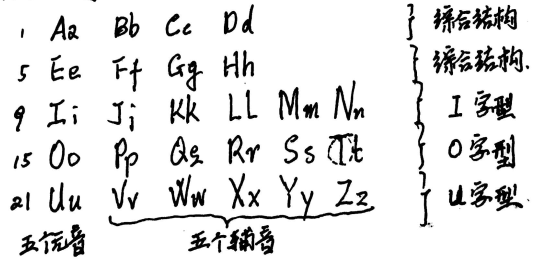 1 Aa Bb Cc Dd } 综合结构
5 Ee Ff Gg Hh } 综合结构.
9 Ii Jj Kk LL Mm Nn } I字型
15 Oo Pp Qq Rr Ss Tt } O字型
21 Uu Vv Ww Xx Yy Zz } U字型.
五个元音 五个辅音